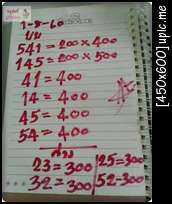 1-8-60
บน
541=200×400
145=200×500
41=400
14=400
45=400
54=400
ล่าง
23=300 25=300
32=300 52-300
[450x600] upic.me